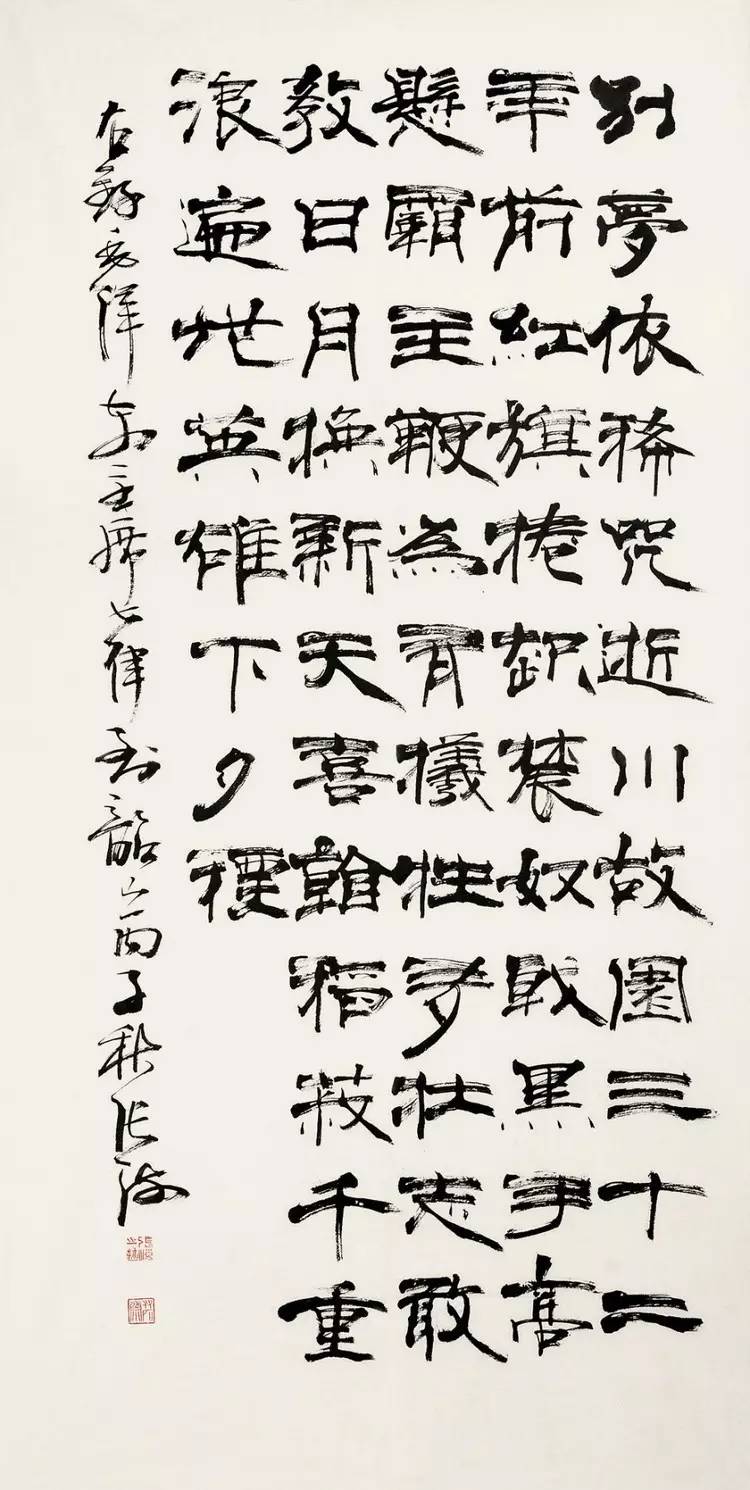 别夢依稀咒逝川故園三十二
年前紅旗捲起農奴戟黑手高
懸霸主鞭為有犧牲多壯志敢
教日月換新天喜看稻菽千重
浪遍地英雄下夕煙
右錄毛澤東主席七律到韶山丙子秋張海